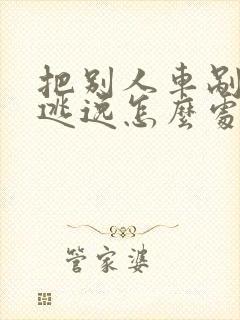 把别人車剐
逃逸怎麽處
管家婆